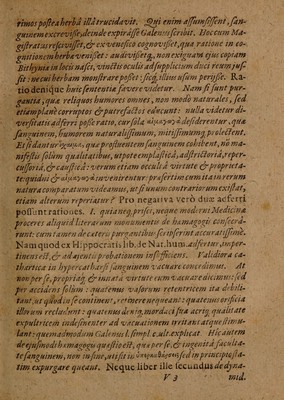 rimos postea herbâ illâ trucidavit. Qui enim assumsissent, san-
guinem excrevisse, deinde expirasse Galenus scribit. Hoc cum Ma-
gistratus rescivisset, & ex venefico cognovisset, qua ratione in co-
gnitionem herbæ venisset: audivisset, non exignam ejus copiam
Bithynia in locis nasci, vinctis oculis ad supplicium duci reum jus-
sit: ne cui herbam monstrare posset: sicq́; illius usum perijsse. Ra-
tio denique huic sententia favere videtur. Nam si sunt pur-
gantia, qua reliquos humores omnes, non modo naturales, sed
etiam planè corruptos & putrefactos educunt: nulla videtur di-
versitatis afferri posse ratio, cur sola desiderentur, quæ
sanguinem, humorem naturalissimum, mitissimumq́; prolectent.
Et si dantur qua profluentem sanguinem cohibent, nõ ma-
nifestis solùm qualitatibus, utpote emplastica, adstrictoria, reper-
cussoria, & caustica: verum etiam occulta virtute & propriata-
te: quidni & inveniantur: præsertim cum ita in rerum
natura comparatum videamus, ut si unum contrariorum existat,
etiam alterum reperiatur? Pro negativa verò duæ afferri
possunt rationes. I. quia neq́; prisci, neque moderni Medicinæ
proceres aliquid literarum monumentis de hæmagogis consecra-
runt: cum tamen de cæteris purgantibus scripserint accuratissimè.
Nam quod ex Hippocratis lib. de Nat. hum. adfertur, imper-
tinens est, & ad ascititis probationem insufficiens. Validiora ca-
thartica in hypercatharsi sanguinem vacuare concedimus. At
non per se, propriaq́; & innata virtute eum vacuare dicimus: sed
per accidens solùm: quatenus vasorum retentricem ita debili-
tant, ut quod in se continent, retinere nequeant: quatenus orificia
illorum recludunt: quatenus deniq́; mordaci sua acriq́; qualitate
expultricem indesinenter ad vacuationem irritant atque stimu-
lant: quemadmodum Galenus l. simpl. explicat. Hic autem
de ejusmodi hæmagogis quæstio est, qua per se, & ingenitâ faculta-
te sanguinem, non in fine, ut fit in sed in principio sta-
tim expurgare queant. Neque liber ille secundus de dyna-
V 3
mid.